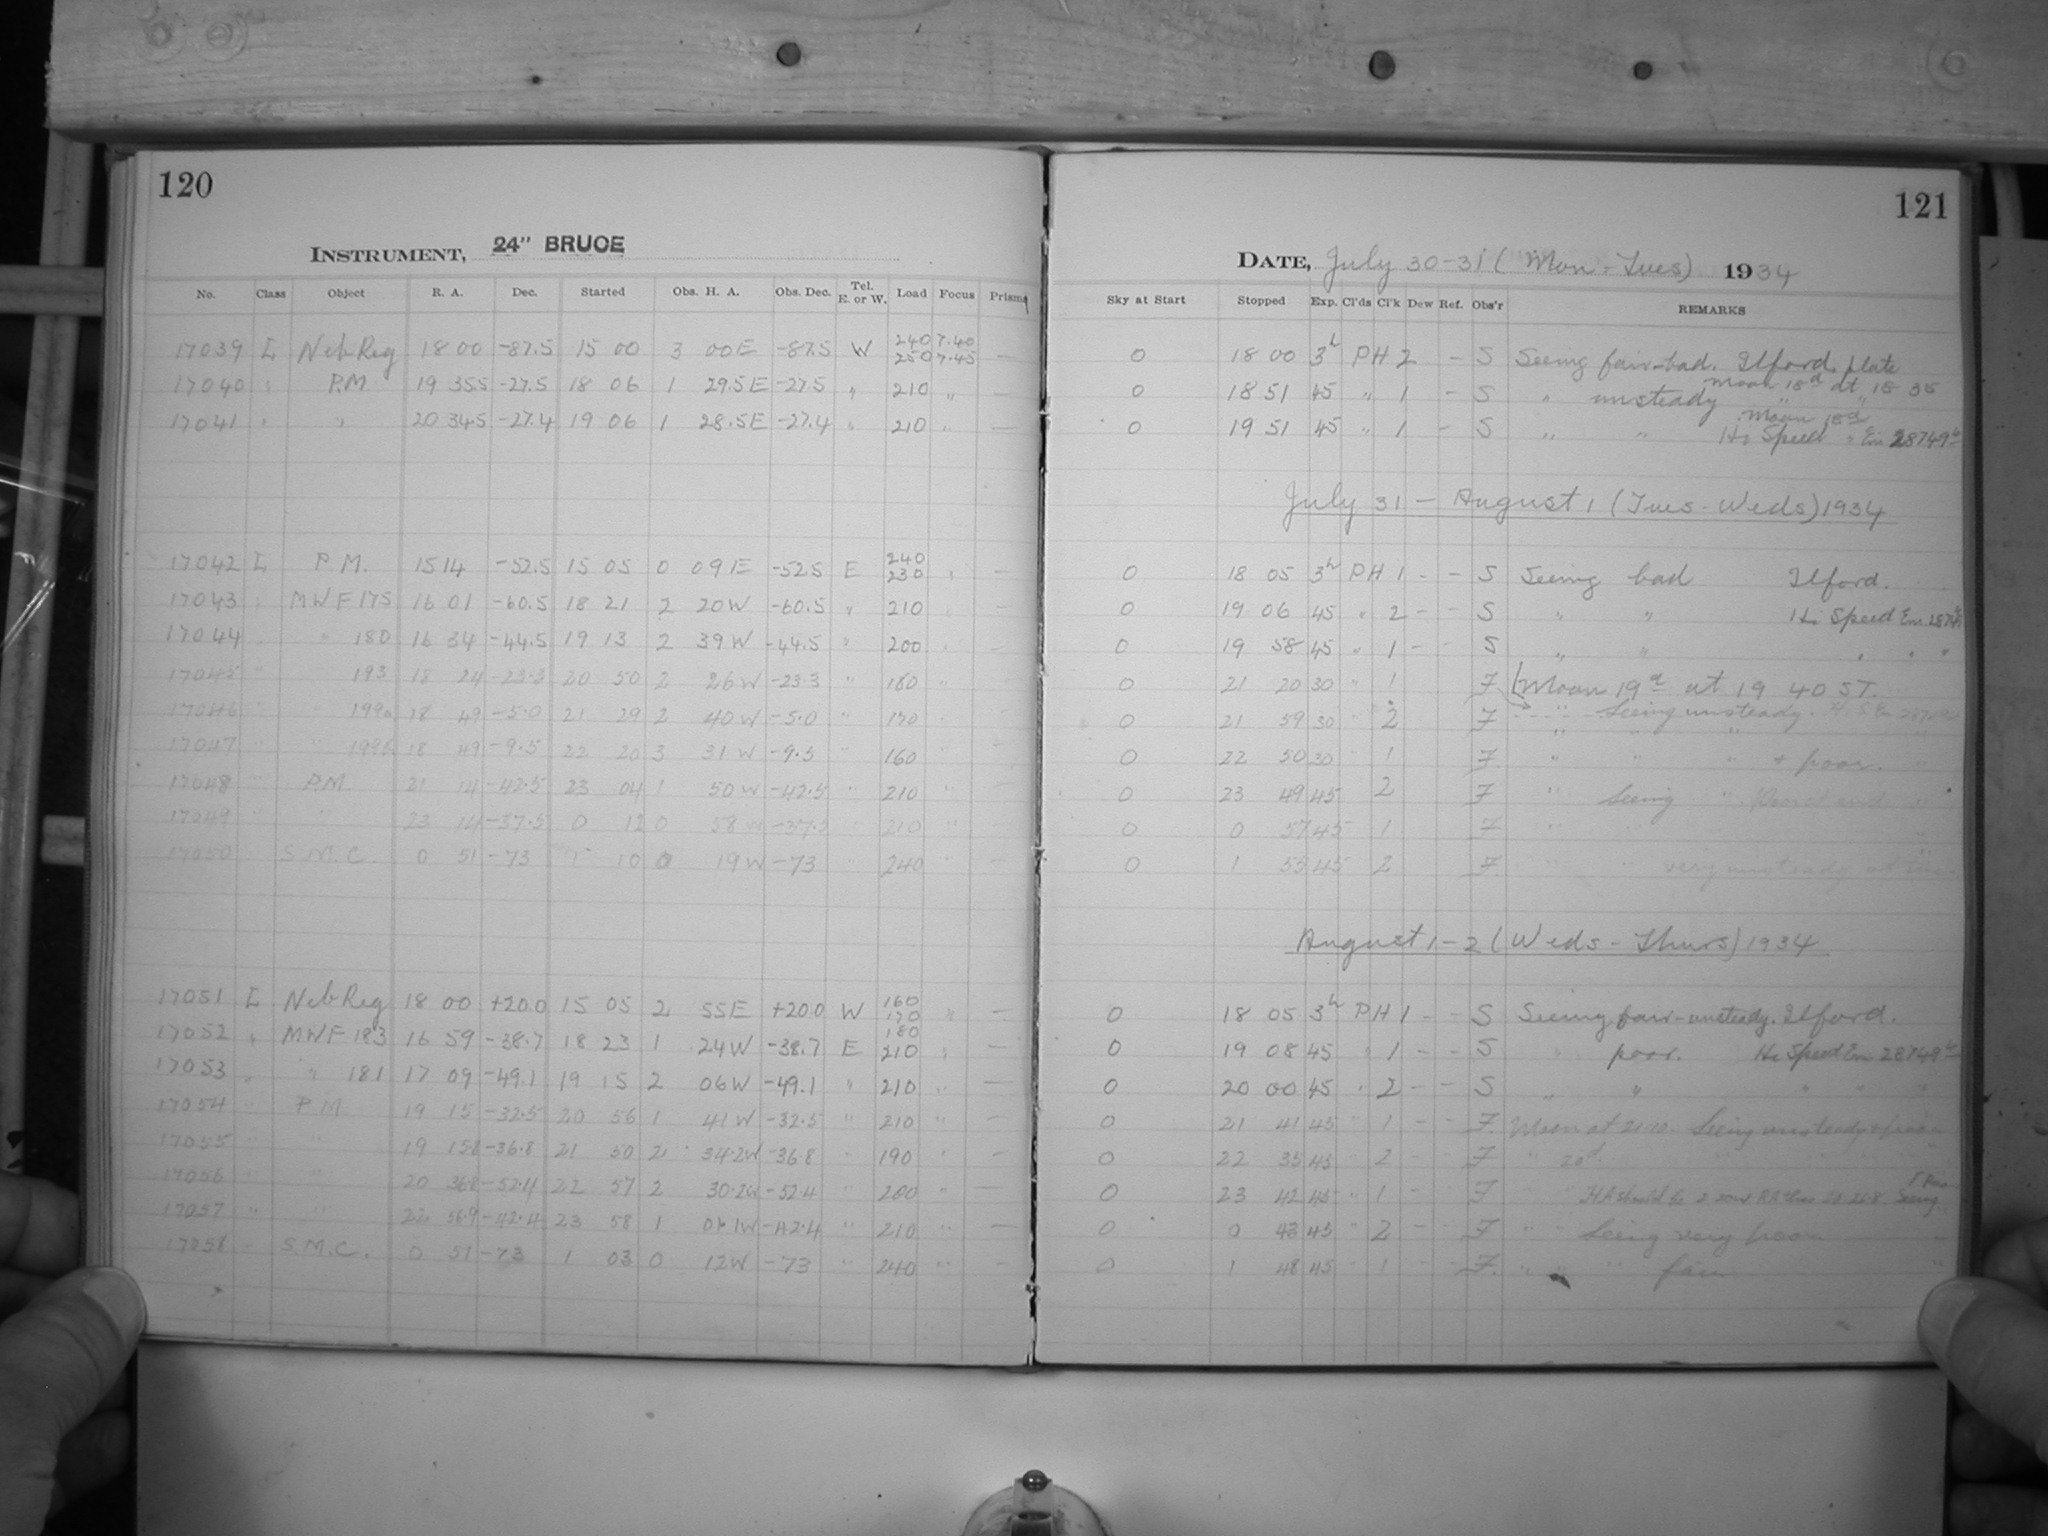 120
INSTRUMENT, 24" BRUCE
No. Class Object R. A. Dec. Started Obs. H. A. Obs. Dec. Tel. E. or W. Load Focus Prisms
17039 I Neb Reg 18 00 -87.5 15 00 3 00E -87.5 W 240 250 7.40 7.45 —
17040 " P.M 19 35.5 -27.5 18 06 1 29.5E -27.5 " 210 " —
17041 " " 20 34.5 -27.4 19 06 1 28.5E -27.4 " 210 " —
17042 I P.M. 15 14 -52.5 15 05 0 09E -52.5 E 240 230 " —
17043 " MWF 175 16 01 -60.5 18 21 2 20W -60.5 " 210 " —
17044 " " 180 16 34 -44.5 19 13 2 39W -44.5 " 200 " —
17045 " " 193 18 24 -23.3 20 50 2 26W -23.3 " 180 " —
17046 " " 199a 18 49 -5.0 21 29 2 40W -5.0 " 170 " —
17047 " " 199b 18 49 -9.5 22 20 3 31W -9.5 " 160 " —
17048 " P.M. 21 14 -42.5 23 04 1 50W -42.5 " 210 " —
17049 " " 23 14 -37.5 0 12 0 58W -37.5 " 210 " —
17050 S.M.C. 0 51 -73 1 10 0 19W -73 " 240 " —
17051 I Neb Reg 18 00 +20.0 15 05 2 55E +20.0 W 160 170 " —
17052 " MWF 183 16 59 -38.7 18 23 1 24W -38.7 E 180 210 " —
17053 " " 181 17 09 -49.1 19 15 2 06W -49.1 " 210 " —
17054 " P.M 19 15 -32.5 20 56 1 41W -32.5 " 210 " —
17055 " " 19 15.8 -36.8 21 50 2 34.2W -36.8 " 190 " —
17056 " " 20 36.8 -52.4 22 57 2 30.2W -52.4 " 200 " —
17057 " " 22 56.9 -42.4 23 58 1 01.1W -42.4 " 210 " —
17058 " S.M.C. 0 51 -73 1 03 0 12W -73 " 240 "
121
DATE, July 30-31 (Mon-Tues) 1934
Sky at Start Stopped Exp. Cl'ds Cl'k Dew Ref. Obs'r REMARKS
0 18 00 3h PH 2 - S Seeing fair-bad. Ilford plate
0 18 51 45 " 1 - S " unsteady Moon 18d at 18 35
0 19 51 45 " 1 - S " " Moon 18d " Hi Speed " Em 28749
July 31 - August 1 (Tues-Weds) 1934
0 18 05 3h PH 1 - - S Seeing bad Ilford.
0 19 06 45 " 2 - - S " " Hi Speed Em.
0 19 58 45 " 1 - - S " " " " "
0 21 20 30 " 1 F Moon 19d at 19 40 ST.
0 21 59 30 " 2 F Seeing unsteady.
0 22 50 30 1 F " " " + poor. "
0 23 49 45 2 F " Seeing "
0 0 57 45 1 F "
0 1 55 45 2 F " " very unsteady
August 1-2 (Weds-Thurs) 1934
0 18 05 3h PH 1 - - S Seeing fair-unsteady. Ilford.
0 19 08 45 " 1 - - S " poor. Hi Speed Em 28749
0 20 00 45 " 2 - - S " " " " "
0 21 41 45 " 1 - - F Moon at 21 10. Seeing unsteady & poor
0 22 35 45 " 2 - - F " 20d
0 23 42 45 " 1 - - F HA should be 2 20W RA Seeing
0 0 43 45 " 2 - - F " " Seeing very poor "
0 1 48 45 " 1 - - F. " " " fair "